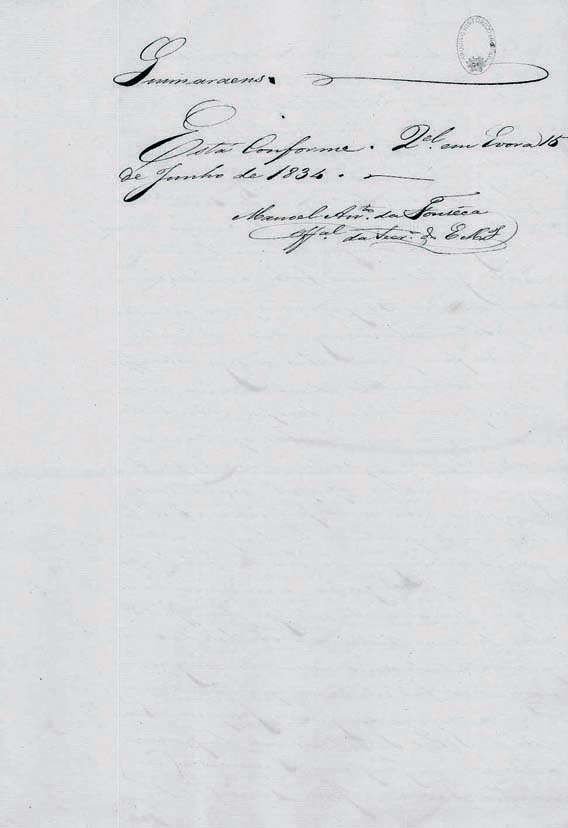 Guimaraens.
Está Conforme. Qel. em Evora 15
de Junho de 1834.
Manoel Anto. da Fonsêca
Offal. da Secr.